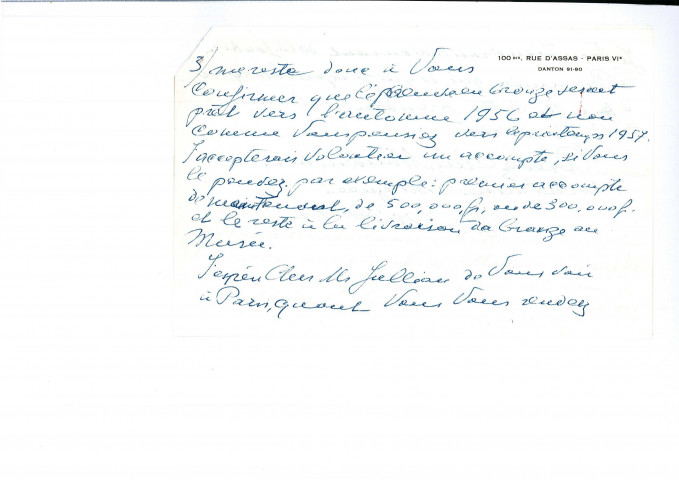 100 BIS, RUE D'ASSAS - PARIS VIᵉ
DANTON 91-90
3/ me reste donc à Vous
Confirmer que l'épreuve en bronze serait
prêt vers l'automne 1956 et non
comme Vous pensiez vers le printemps 1957.
J'accepterais volontier un accompte, si Vous
le pouvez. par exemple: premier accompte
de maintenant, de 500,000 fr, ou de 300.000 fr.
et le reste à la livraison du bronze au
Musée.
J'espère Cher Mr Jullian de Vous voir
à Paris, quant Vous Vous rendez